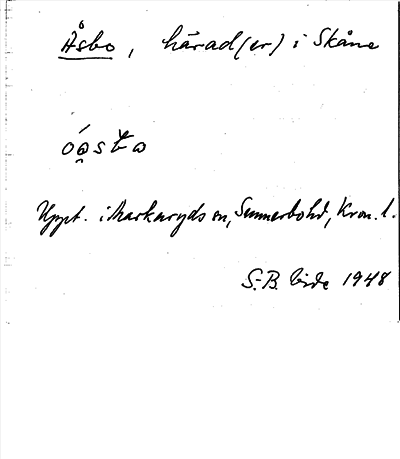 Åsbo, härad(er) i Skåne
Uppt. i Markaryds sn, Sunnerbohd, Kron. l.
S.-B. Vide 1948